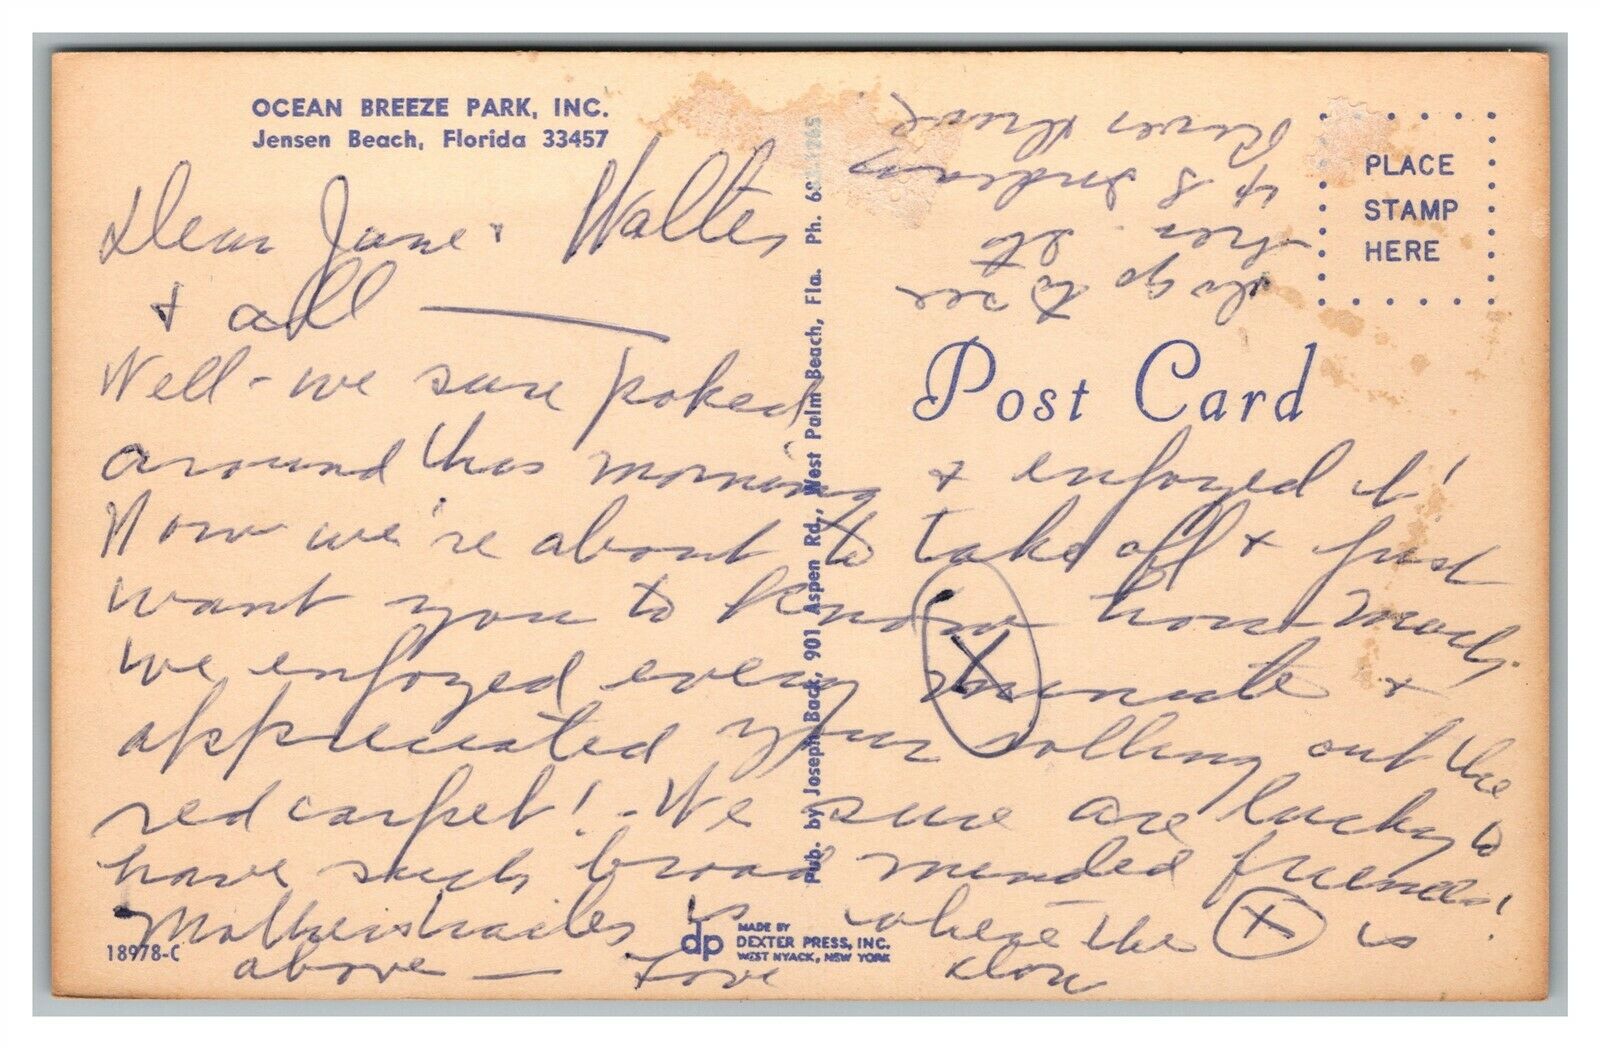 OCEAN BREEZE PARK, INC.
Jensen Beach, Florida 33457
Dear Jane & Walter
& all —
Well - we sure poked
around this morning & enjoyed it!
Now we're about to take off & just
want you to know how much
we enjoyed every minute &
appreciated your rolling out the
red carpet! - We sure are lucky to
have such broad minded friends!
Mother's trailer is where the X is
above — Love Don
to go to see
her. Its
4 S Indian
River Drive
PLACE
STAMP
HERE
Post Card
Pub. by Joseph Back, 901 Aspen Rd., West Palm Beach, Fla. Ph.
18978-C
dp
MADE BY
DEXTER PRESS, INC.
WEST NYACK, NEW YORK
X